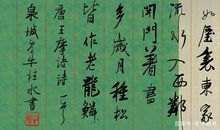 如屋裏東家
流水入西鄰
閉門著書
多歲月種松
皆作老龍鱗
唐王摩詰詩一首
泉城
書